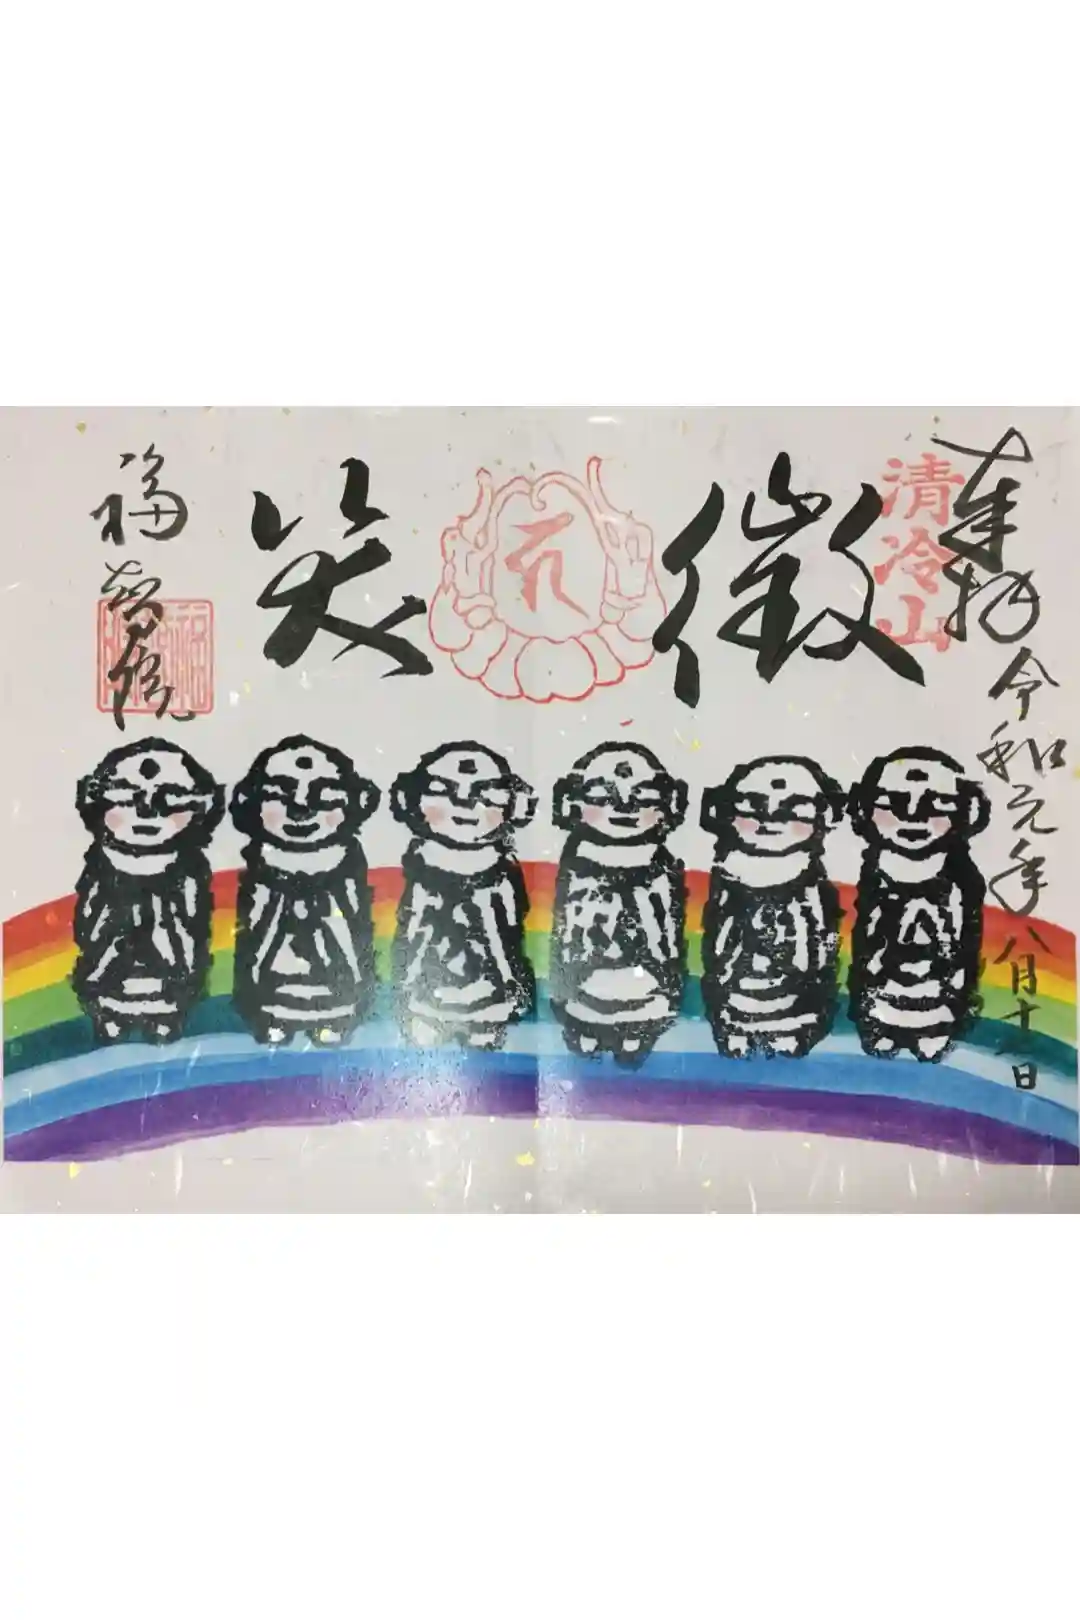 奉拝
令和元年八月十一日
清冷山
微笑
福智院